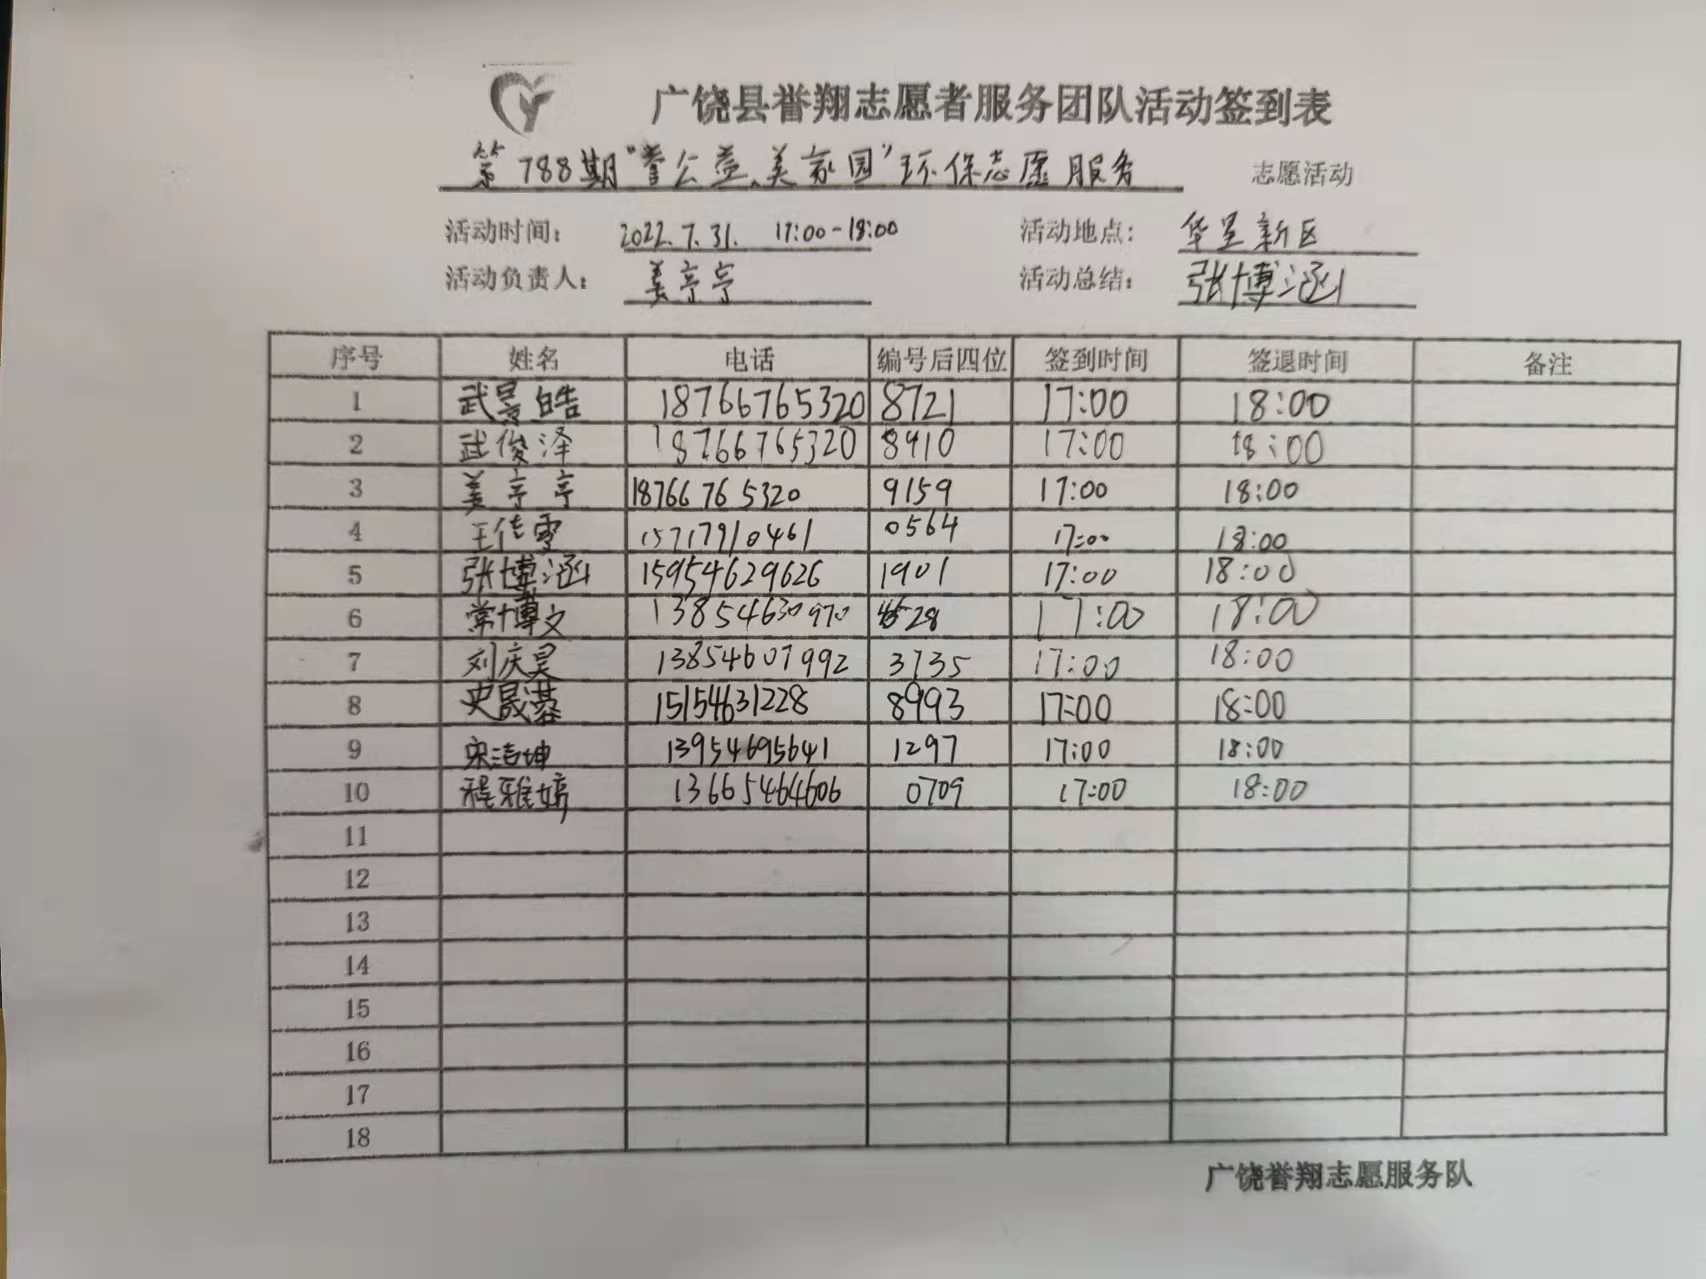 广饶县誉翔志愿者服务团队活动签到表
第788期“誉公益、美家园”环保志愿服务 志愿活动
活动时间: 2022.7.31. 17:00-18:00 活动地点: 华星新区
活动负责人: 姜亭亭 活动总结: 张博涵
序号 姓名 电话 编号后四位 签到时间 签退时间 备注
1 武景皓 18766765320 8721 17:00 18:00
2 武俊泽 18766765320 8910 17:00 18:00
3 姜亭亭 18766765320 9159 17:00 18:00
4 王佳雯 15717910461 0564 17:00 18:00
5 张博涵 15954629626 1901 17:00 18:00
6 常博文 13854630970 28 17:00 18:00
7 刘庆昊 13854607992 3735 17:00 18:00
8 史晟蓉 15154631228 8993 17:00 18:00
9 宋洁坤 13954695641 1297 17:00 18:00
10 程雅婷 13665464606 0709 17:00 18:00
11
12
13
14
15
16
17
18
广饶誉翔志愿服务队